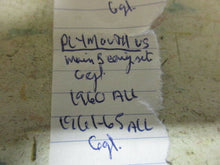 6cyl.
PLYMOUTH US
main Bearing set
6cyl.
1960 ALL
1961-65 ALL
6cyl.